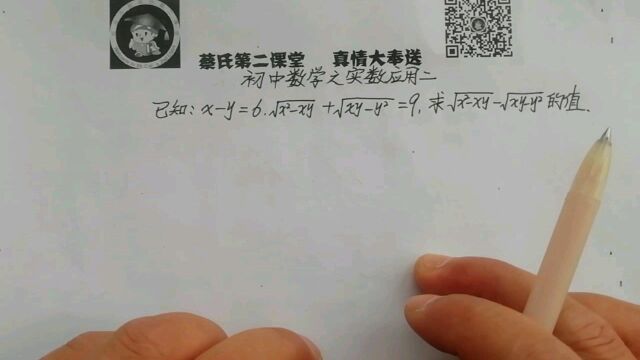 蔡氏第二课堂 真情大奉送
初中数学之实数应用二
已知：x-y=6，√x²-xy + √xy-y² =9，求√x²-xy-√xy-y² 的值．